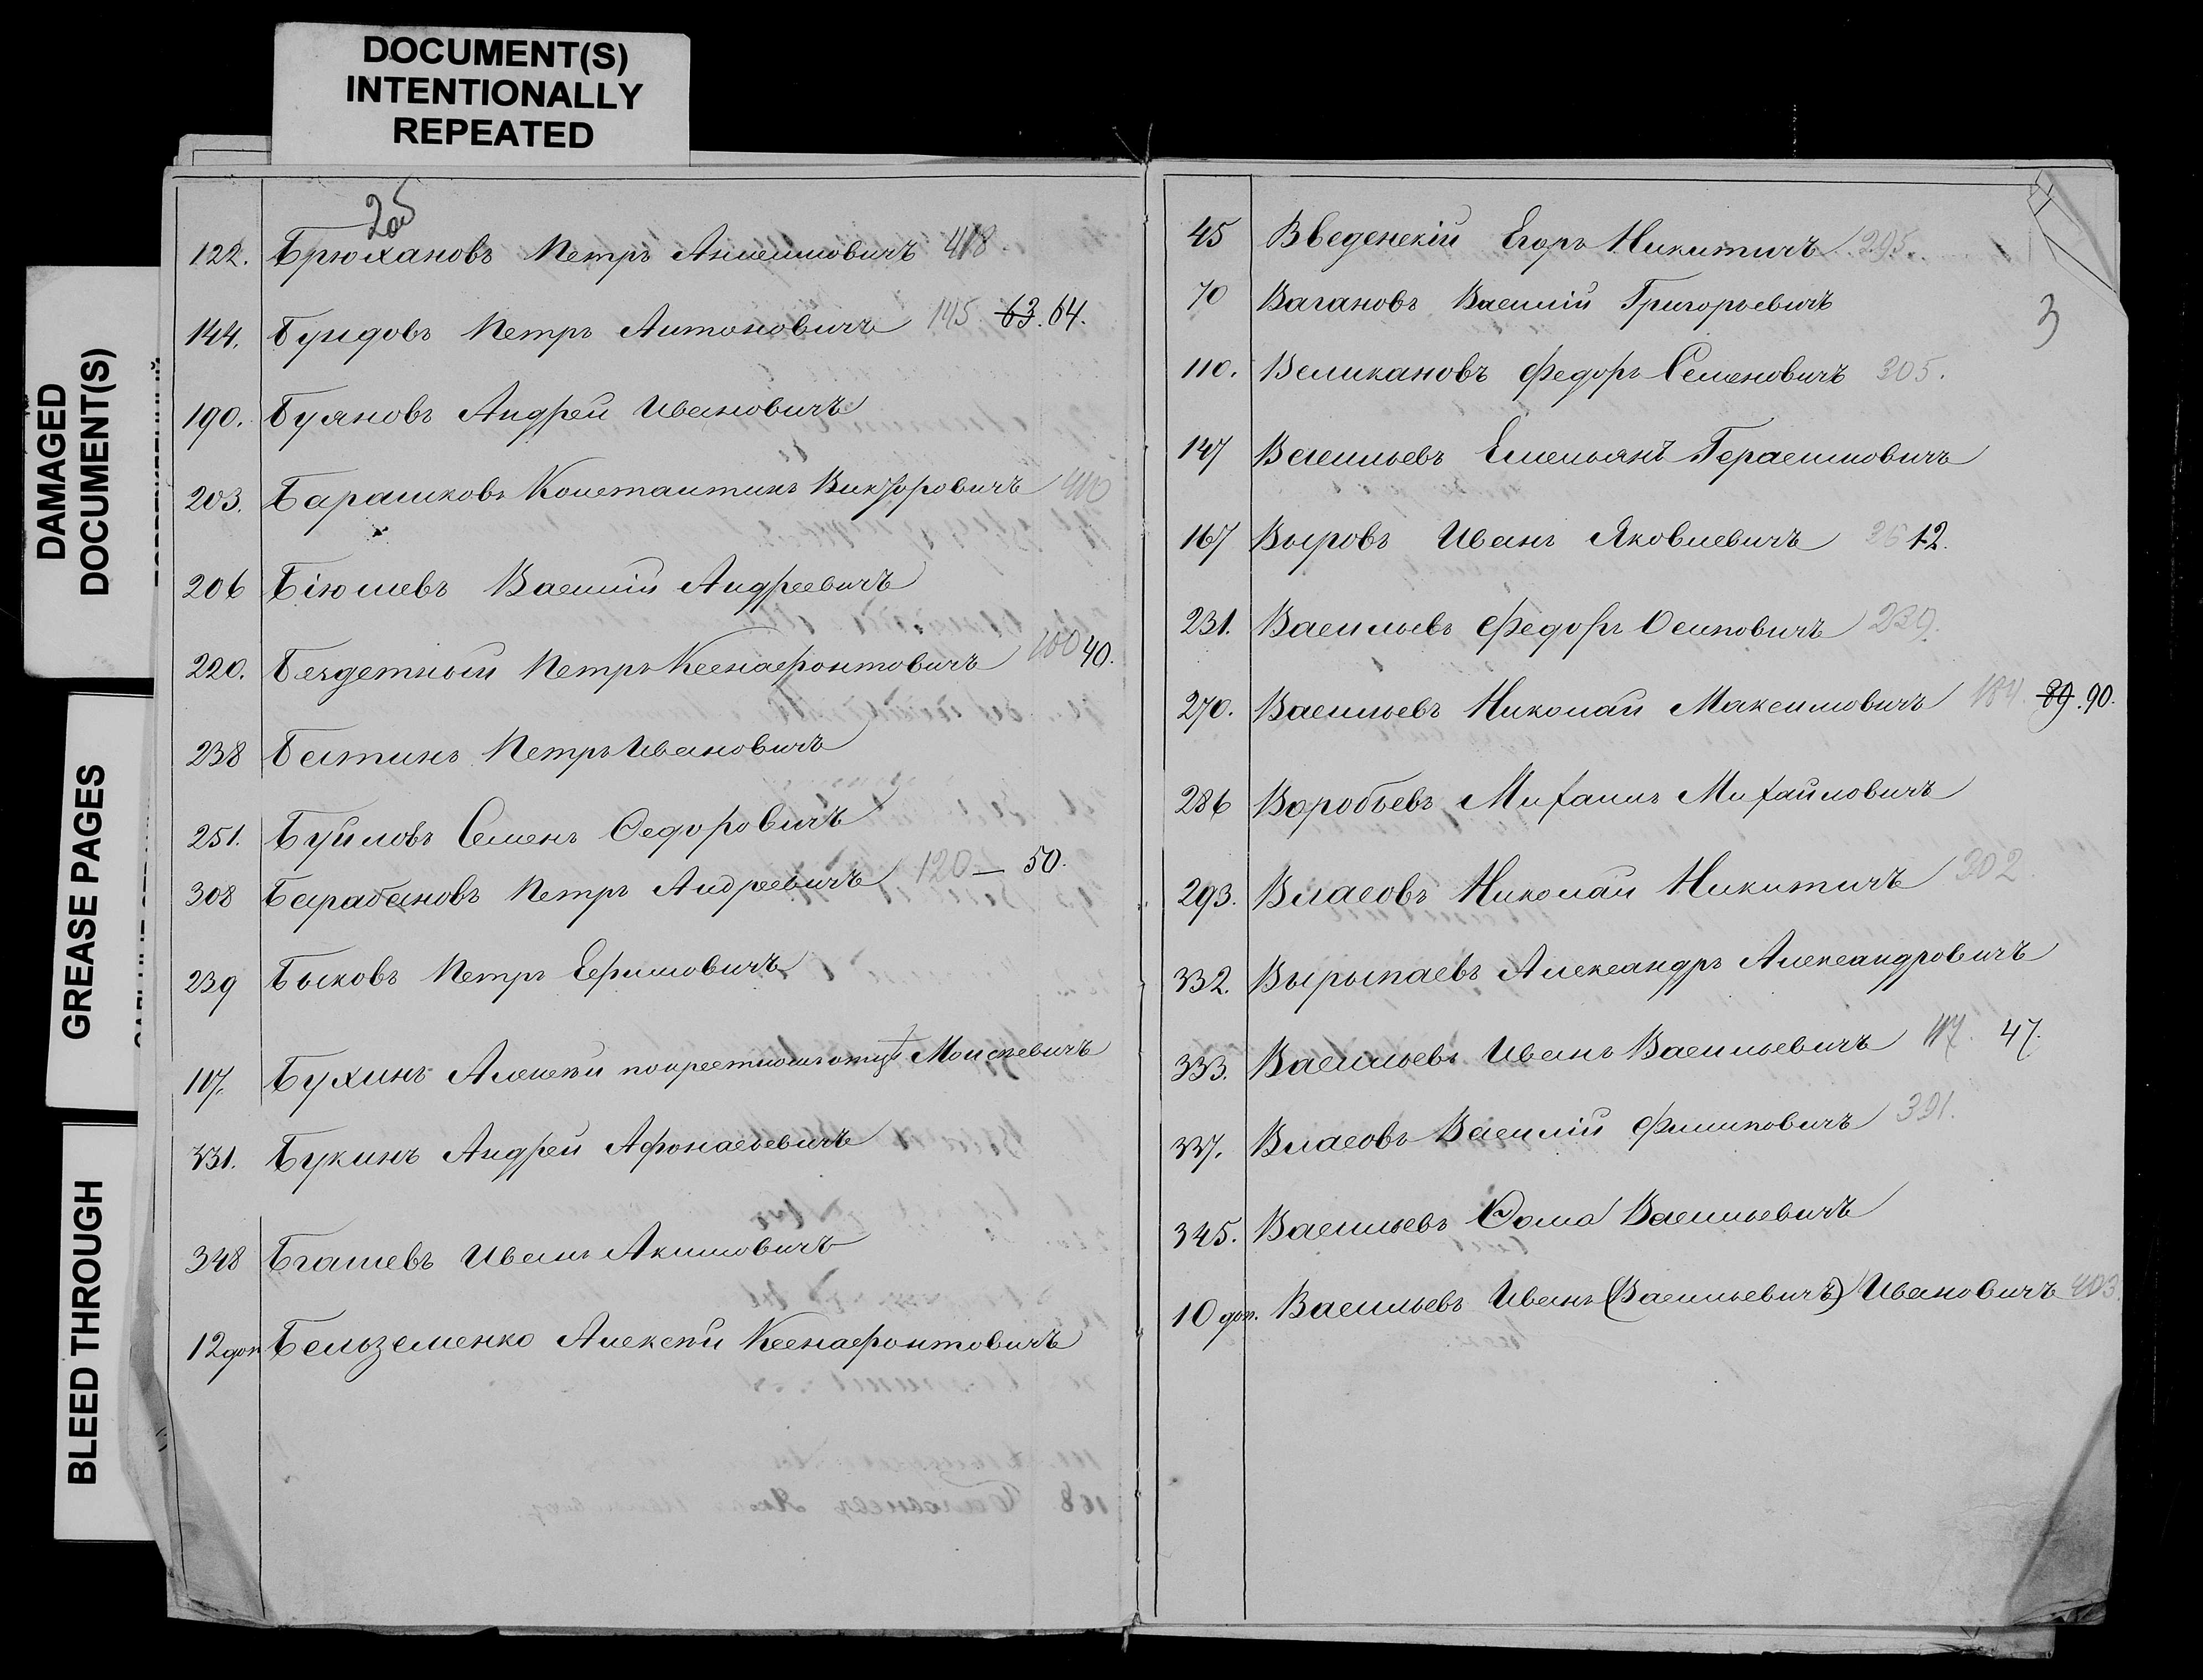 DOCUMENT(S)
INTENTIONALLY
REPEATED
DAMAGED
DOCUMENT(S)
GREASE PAGES
BLEED THROUGH
25
122. Брюхановъ Петръ Анисимовичъ 418.
144. Бундовъ Петръ Антоновичъ 145 63. 64.
190. Буяновъ Андрей Ивановичъ
203. Барашковъ Константинъ Викторовичъ 410
206 Бiюшевъ Василiй Андреевичъ
220. Бездетный Петръ Ксенафонтовичъ 100 40.
238 Бетинъ Петръ Ивановичъ
251. Буйловъ Семенъ Ѳедоровичъ
308 Барабановъ Петръ Андреевичъ 120 — 50.
239 Быковъ Петръ Ефимовичъ
117. Бухинъ Алексѣй по крестному отцу Моисѣевичъ
331. Букинъ Андрей Афонасьевичъ
348 Богашевъ Иванъ Акимовичъ
12 доп Бельземенко Алексѣй Ксенафонтовичъ
3
45 Введенскiй Егоръ Никитичъ 295.
70 Вагановъ Василiй Григорьевичъ
110. Великановъ Федоръ Семеновичъ 305.
147 Васильевъ Емельянъ Герасимовичъ
167 Выровъ Иванъ Яковлевичъ 26 12.
231. Васильевъ Федоръ Осиповичъ 239.
270. Васильевъ Николай Максимовичъ 184. 89. 90.
286 Воробьевъ Михаилъ Михайловичъ
293. Власовъ Николай Никитичъ 302
332. Вырыпаевъ Александръ Александровичъ
333. Васильевъ Иванъ Васильевичъ 117. 47.
337. Власовъ Василiй Филиповичъ 391.
345. Васильевъ Ѳома Васильевичъ
10 доп. Васильевъ Иванъ (Васильевичъ) Ивановичъ 403.